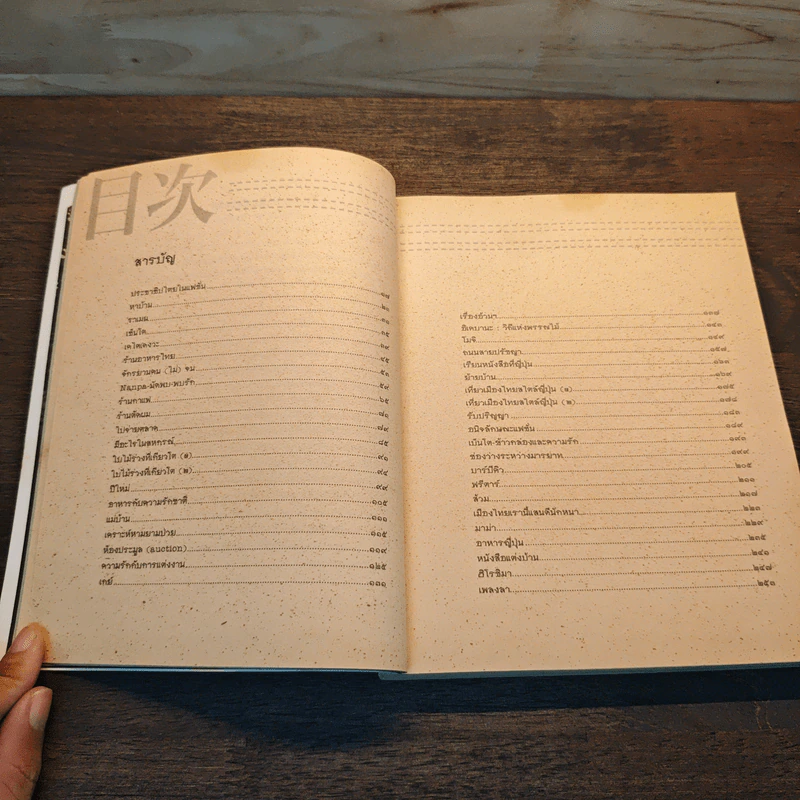 目次
สารบัญ
ประชาธิปไตยในแฟชั่น ๑๗
หาบ้าน ๒๑
ราเมน ๓๑
เซ็นโต ๓๕
เคโตเคงวะ ๓๙
ร้านอาหารไทย ๔๕
จักรยานคน (ไม่) จน ๕๑
Nanpa-มัดพบ-พบรัก ๕๙
ร้านกาแฟ ๖๕
ร้านตัดผม ๗๑
ไปจ่ายตลาด ๗๙
มีอะไรในสหกรณ์ ๘๕
ใบไม้ร่วงที่เกียวโต (๑) ๙๑
ใบไม้ร่วงที่เกียวโต (๒) ๙๔
ปีใหม่ ๙๙
อาหารกับความรักชาติ ๑๐๕
แม่บ้าน ๑๑๑
เคราะห์หามยามป่วย ๑๑๕
ห้องประมูล (auction) ๑๑๙
ความรักกับการแต่งงาน ๑๒๕
เกย์ ๑๓๑
เรื่องยัวนา ๑๓๗
อิเคบานะ : วิถีแห่งพรรณไม้ ๑๔๑
โมจิ ๑๔๙
ถนนสายปรัชญา ๑๕๗
เรียนหนังสือที่ญี่ปุ่น ๑๖๓
ย้ายบ้าน ๑๖๙
เที่ยวเมืองไทยสไตล์ญี่ปุ่น (๑) ๑๗๕
เที่ยวเมืองไทยสไตล์ญี่ปุ่น (๒) ๑๗๘
รับปริญญา ๑๘๓
อนิจลักษณะแฟชั่น ๑๘๙
เบ็นโต-ข้าวกล่องและความรัก ๑๙๓
ช่องว่างระหว่างมารยาท ๑๙๙
บาร์บีคิว ๒๐๕
ฟรีตาร์ ๒๑๑
ส้วม ๒๑๗
เมืองไทยเรานี้แสนดีนักหนา ๒๒๓
มาม่า ๒๒๙
อาหารญี่ปุ่น ๒๓๕
หนังสือแต่งบ้าน ๒๔๑
ฮิโรชิมา ๒๔๗
เพลงลา ๒๕๓